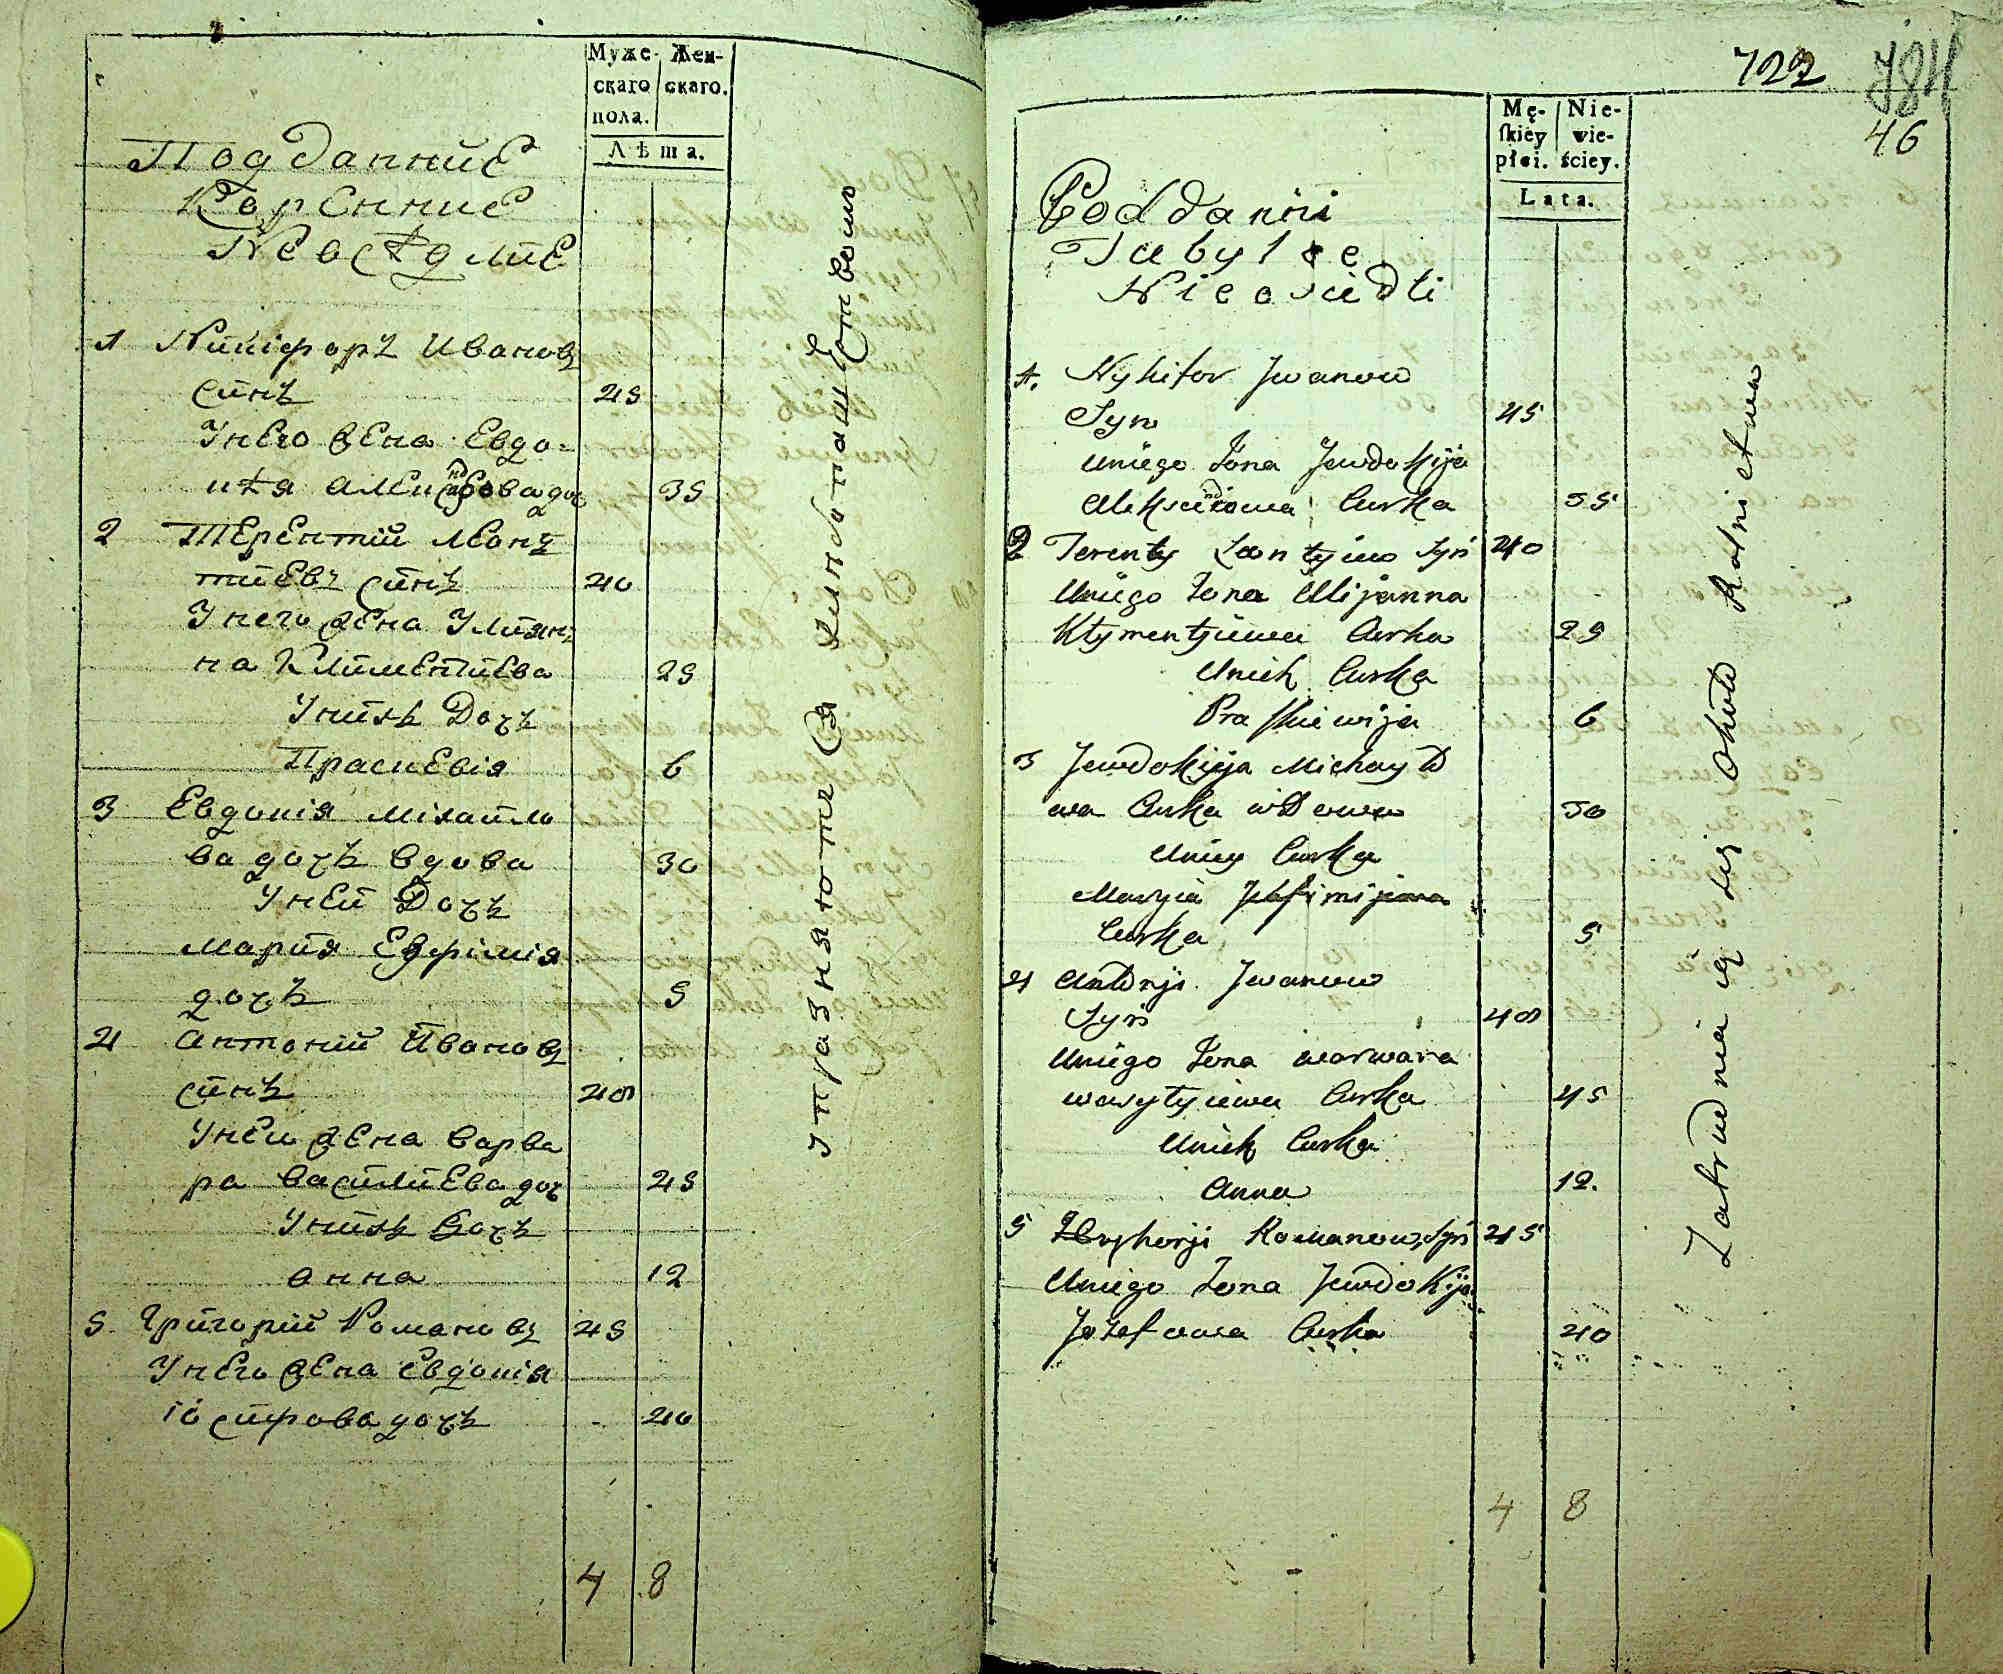 Муже- Жен-
скаго скаго.
пола.
Лѣта.
Подданние
Коренние
Неосѣдлие
1 Никіфоръ Ивановъ
синъ 45
У него жена Евдо-
кѣя Александрова доч 35
2 Терентій Леон
тиевъ синъ 40
У него жена Улиян
на Климентиева 29
У нихъ Дочъ
Праскевія 6
3 Евдокія Міхайло
ва дочъ вдова 30
У ней Дочъ
Мария Евфімія
дочъ 5
4 Антоній Ивановъ
синъ 48
У неи жена Варва
ра Василиева доч 45
У нихъ Дочъ
Анна 12
5 Григорій Романовъ 45
У него жена Евдокія
Іосифова дочъ 40
4 8
упразняютъ Ся хлибопашЕствомъ
722
784
46
Mę- Nie-
skiey wie-
płci. ściey.
Lata.
Poddanni
Tubylce
Nieosiedli
1. Nykifor Jwanow
Syn 45
Uniego Żona Jewdokija
Aleksandrowa Curka 35
2 Terenty Leontyiew Syn 40
Uniego Żona Ulijanna
Kłymentjiewa Curka 29
Unich Curka
Praskiewija 6
3 Jewdokija Michayło
wa Curka wdowa 30
Uniey Curka
Maryia Jeufimijowa
Curka 5
4 Antonji Jwanow
Syn 48
Uniego Żona warwara
wasylyiewa Curka 45
Unich Curka
Anna 12.
5 Hryhorji Romanow Syn 45
Uniego Żona Jewdokija
Jozefowa Curka 40
4 8
Zatrudniaią się Około Rolnictwa